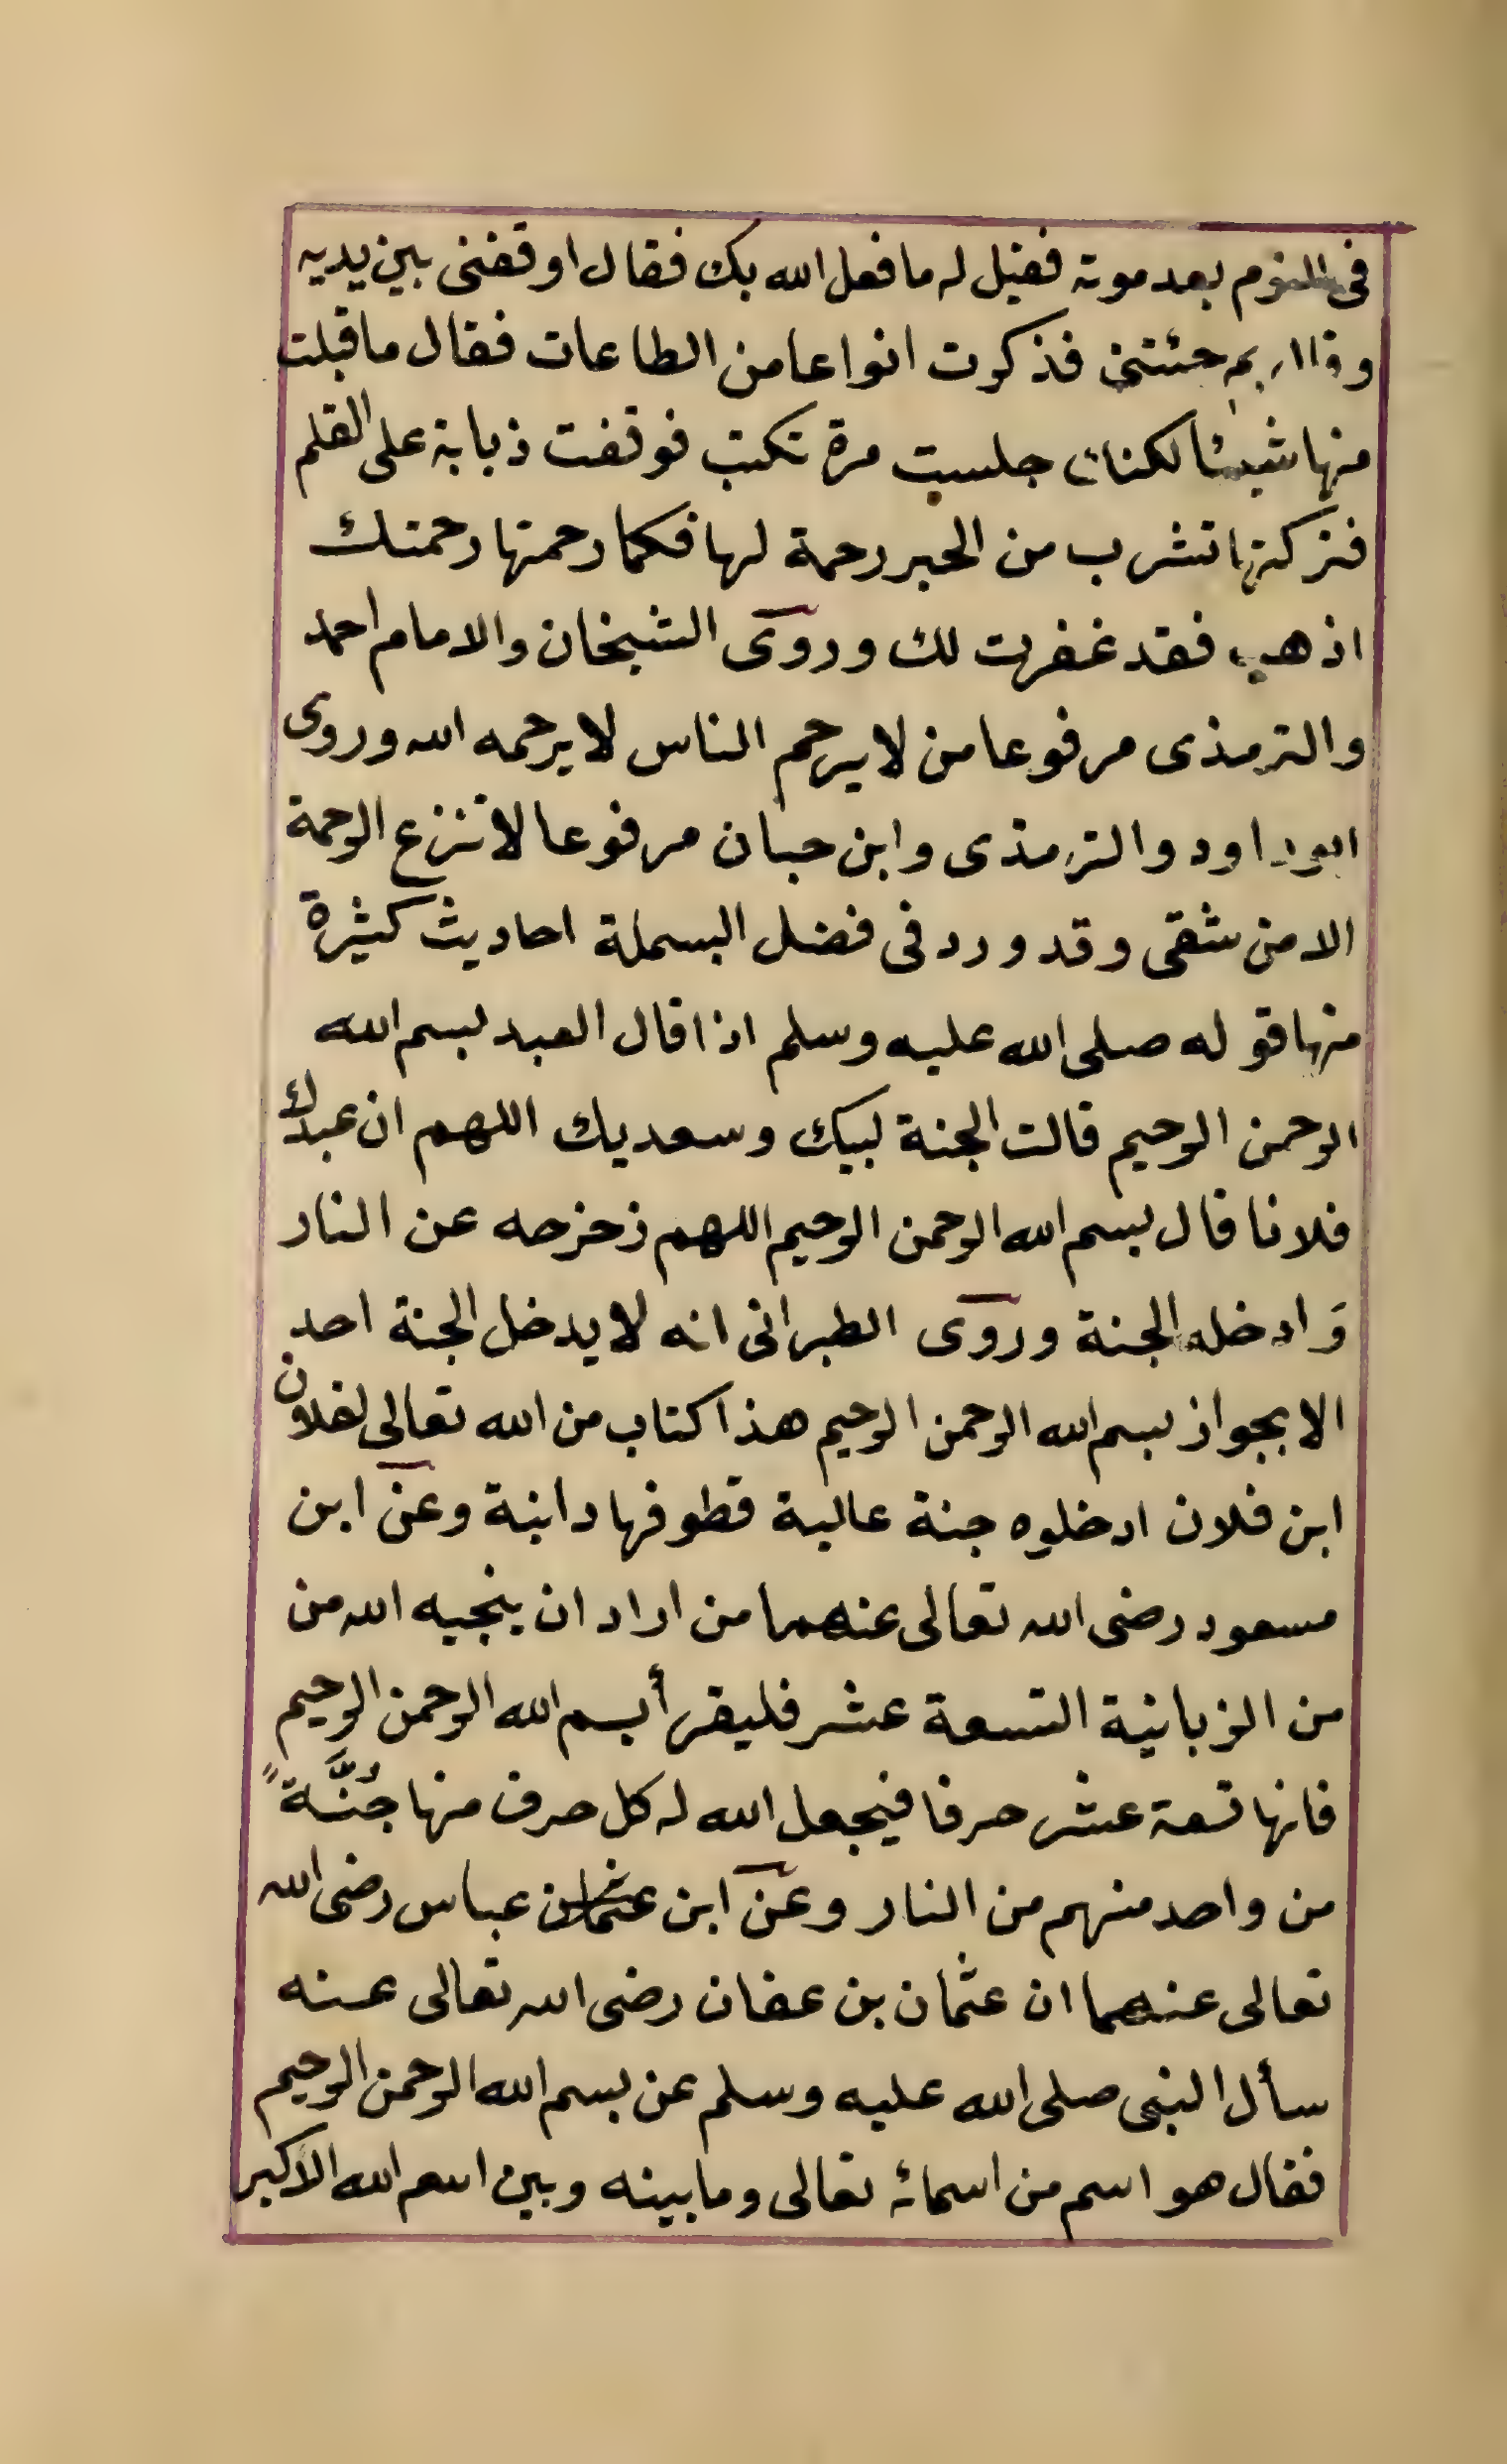 فى النوم بعد موته فقيل له ما فعل الله بك فقال اوقفنى بين يديه
وقال بم جئتنى فذكرت انواعا من الطاعات فقال ما قبلت
منها شيئا لكنك جلست مرة تكتب فوقفت ذبابة على القلم
فتركتها تشرب من الحبر رحمة لها فكما رحمتها رحمتك
اذهب فقد غفرت لك وروى الشيخان والامام احمد
والترمذى مرفوعا من لا يرحم الناس لا يرحمه الله وروى
ابو داود والترمذى وابن حبان مرفوعا لا تنزع الرحمة
الا من شقى وقد ورد فى فضل البسملة احاديث كثيرة
منها قوله صلى الله عليه وسلم اذا قال العبد بسم الله
الرحمن الرحيم قالت الجنة لبيك وسعديك اللهم ان عبدك
فلانا قال بسم الله الرحمن الرحيم اللهم زحزحه عن النار
وَادخله الجنة وروى الطبرانى انه لا يدخل الجنة احد
الا بجواز بسم الله الرحمن الرحيم هذا كتاب من الله تعالى لفلان
ابن فلان ادخلوه جنة عالية قطوفها دانية وعن ابن
مسعود رضى الله تعالى عنهما من اراد ان ينجيه الله من
من الزبانية التسعة عشر فليقرأ بسم الله الرحمن الرحيم
فانها تسعة عشر حرفا فيجعل الله له كل حرف منها جُنَّةً
من واحد منهم من النار وعن ابن عثمان عباس رضى الله
تعالى عنهما ان عثمان بن عفان رضى الله تعالى عنه
سأل النبى صلى الله عليه وسلم عن بسم الله الرحمن الرحيم
فقال هو اسم من اسمائه تعالى وما بينه وبين اسم الله الاكبر